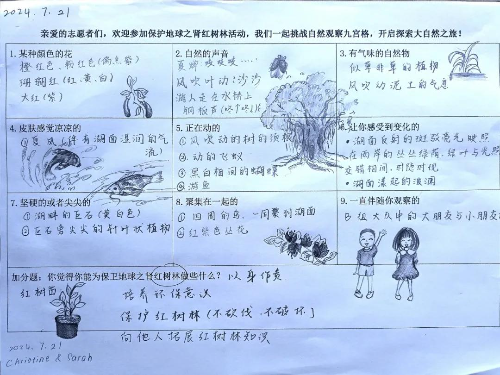 2024.7.21
亲爱的志愿者们，欢迎参加保护地球之肾红树林活动，我们一起挑战自然观察九宫格，开启探索大自然之旅！
1.某种颜色的花
橙红色、粉红色
珊瑚红（红、黄、白）
大红（紫）
2.自然的声音
夏蝉
风吹叶动：沙沙
游人走在水桥上
3.有气味的自然物
似草非草的植物
风吹动泥土的气息
4.皮肤感觉凉凉的
①夏风
有湖面湿润的气流
5.正在动的
①风吹动的树的
②动的飞蚁
③黑白相间的蝴蝶
④游鱼
6.让你感受到变化的
·湖面反射的斑驳亮光映照
在两岸的丛丛绿荫，
交错相间，
·湖面漾起的浪潮
7.坚硬的或者尖尖的
①湖畔的巨石（黄白色）
②巨石旁尖尖的针叶状植物
8.聚集在一起的
①四周的鸟，一同聚到湖面
②红紫色丛花
9.一直伴随你观察的
B组大队中的大朋友与小朋友
加分题：你觉得你能为保卫地球之肾红树林做些什么？以身作责
红树苗
培养环保意识
保护红树林（不砍伐、不破坏）
向他人拓展红树林知识
2024.7.21
Christine & Sarah